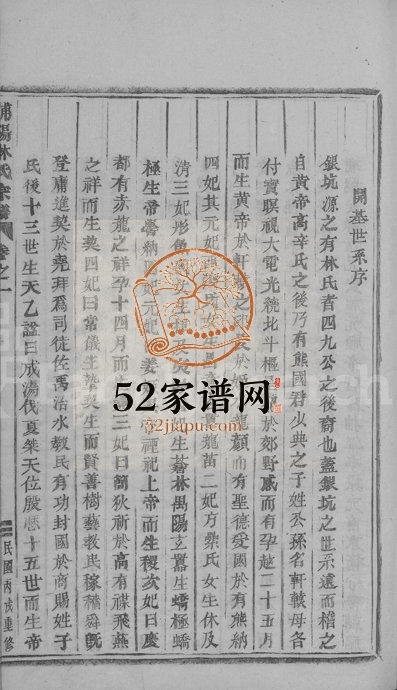 開基世系序
銀坑源之有林氏者四九公之後裔也蓋銀坑之世系遠而稽之
自黃帝高辛氏之後乃有熊國君少典之子姓公孫名軒轅母各
付寶暝視大電光繞北斗樞於郊野感而有孕越二十五月
而生黃帝於軒龍顏而有聖德受國於有熊納
四妃其元妃龍苗二妃方纍氏女生休及
清三妃彤魚生蒼林禺陽玄囂生蟜極蟜
極生帝嚳納元妃姜禋祀上帝而生稷次妃曰慶
都有赤龍之祥孕十四月而三妃曰簡狄祈於高有禖飛燕
之祥而生契四妃曰常儀生摯契生而賢善樹藝教民稼穡舜既
登庸進契於堯拜爲司徒佐禹治水教民有功封國於商賜姓子
氏後十三世生天乙諡曰成湯伐夏桀天位殷歷十五世而生帝
浦陽林氏宗譜 卷之一
民國丙戌重修
52家谱网
52jiapu.com